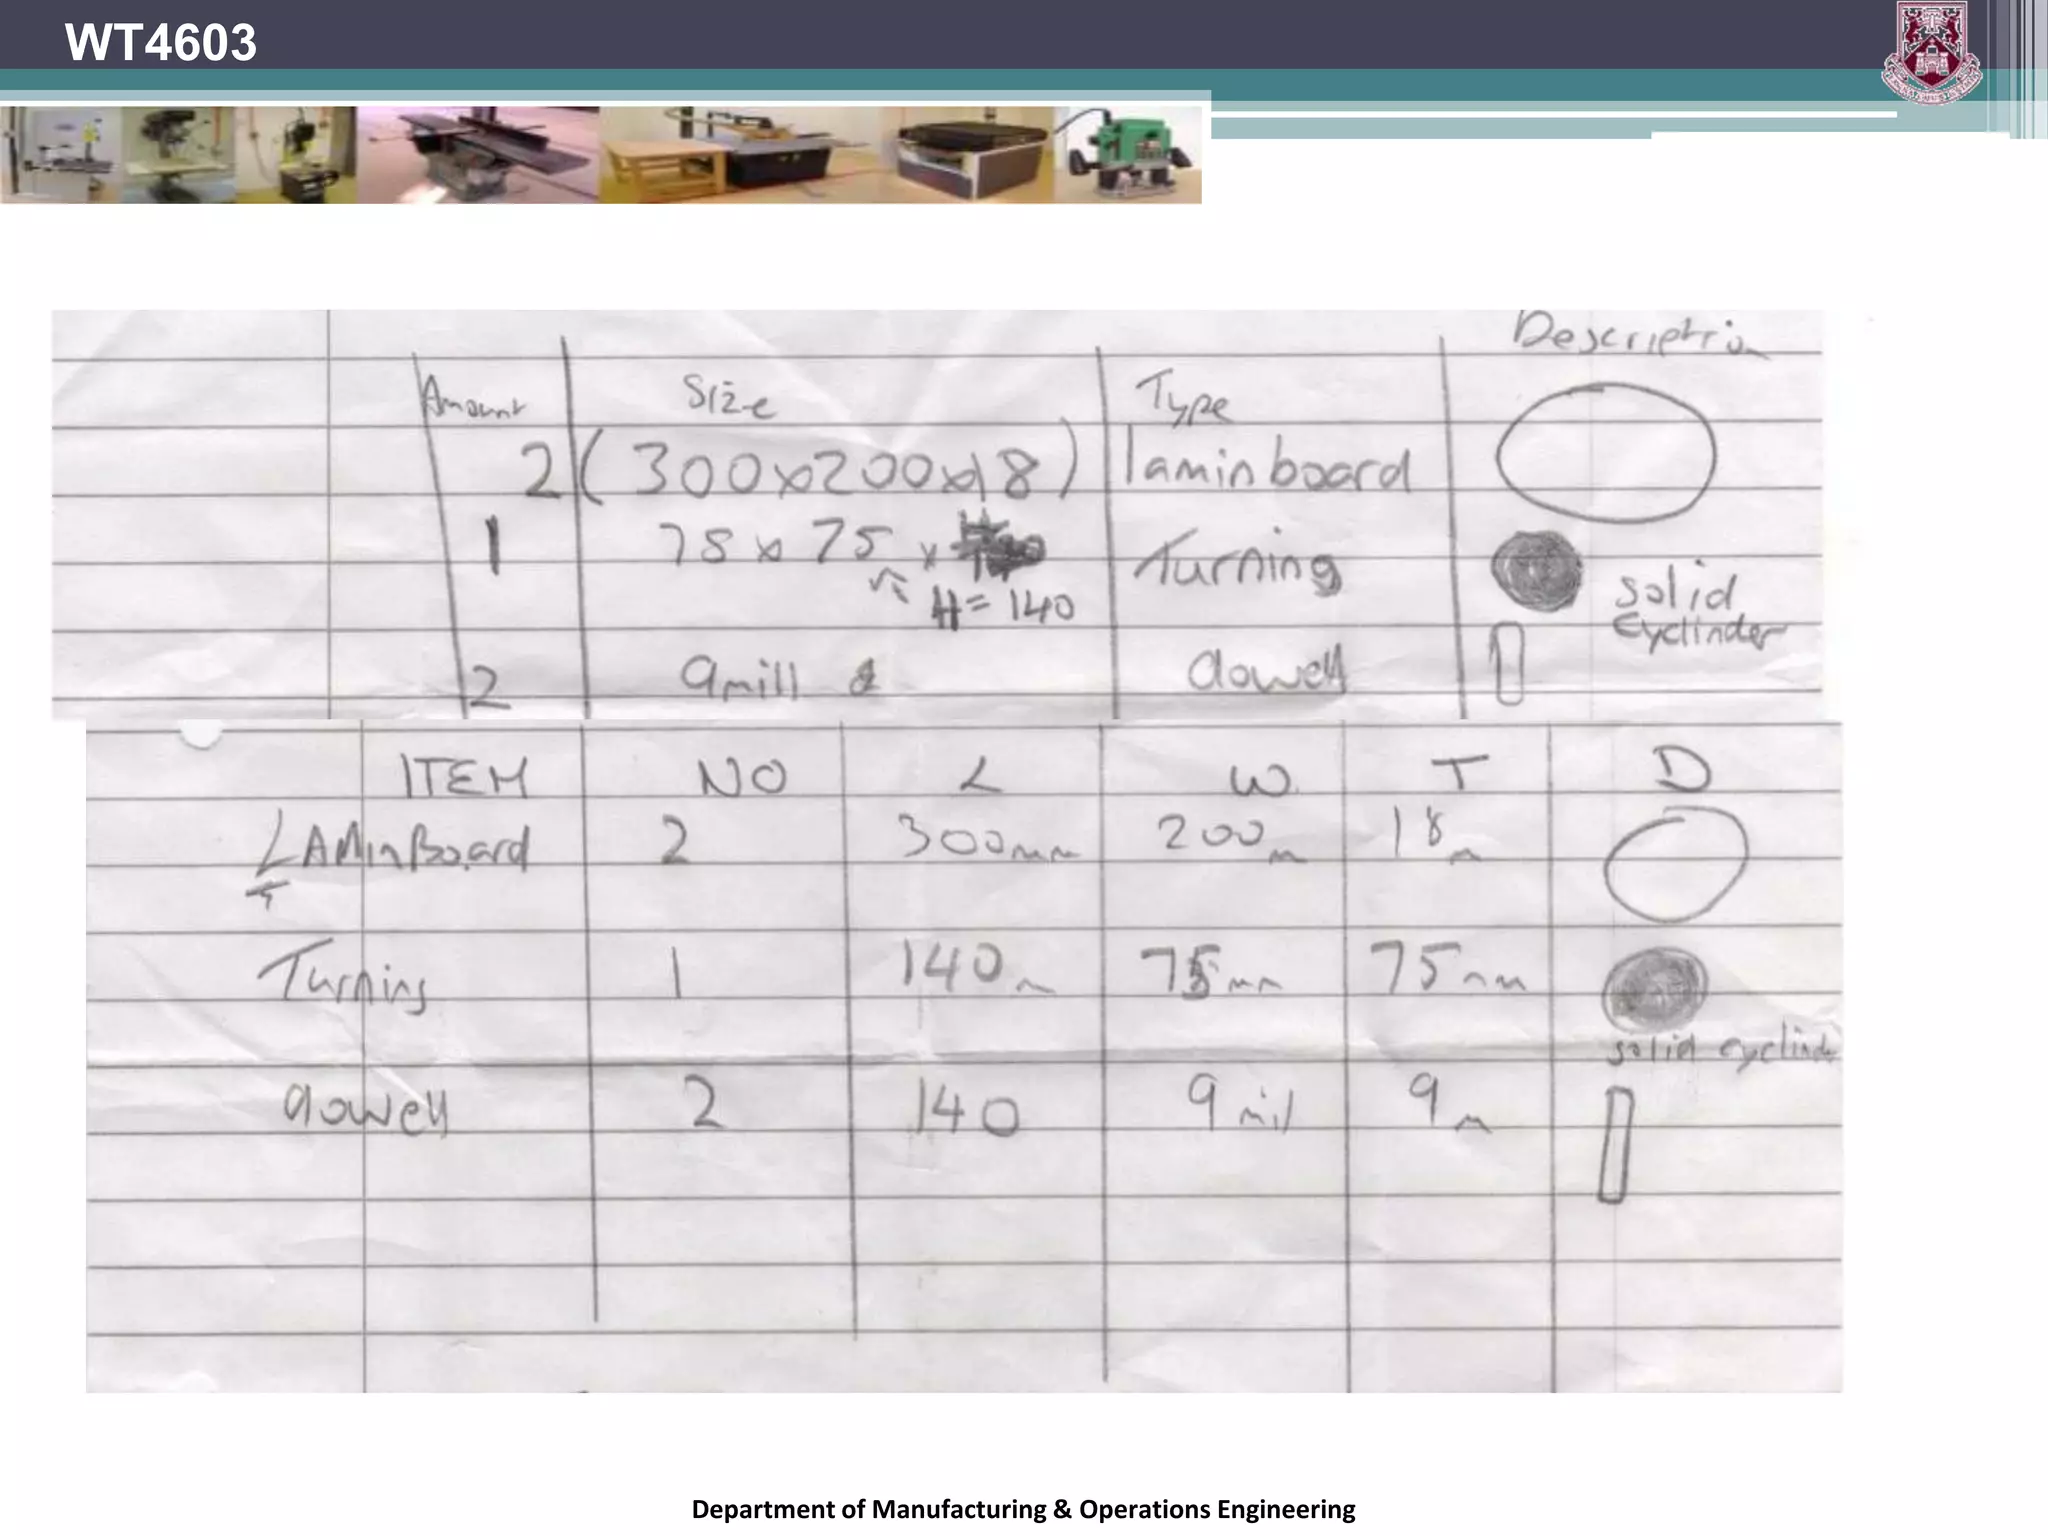 WT4603
Description
Amount Size Type
2 (300x200x18) laminboard
1 75 x 75 x Turning
H = 140
solid
cyclinder
2 9mill dowell
ITEM NO L W T D
LAMinBoard 2 300mm 200m 18m
T
Turning 1 140m 75mm 75mm
solid cyclinder
dowell 2 140 9mil 9m
Department of Manufacturing & Operations Engineering